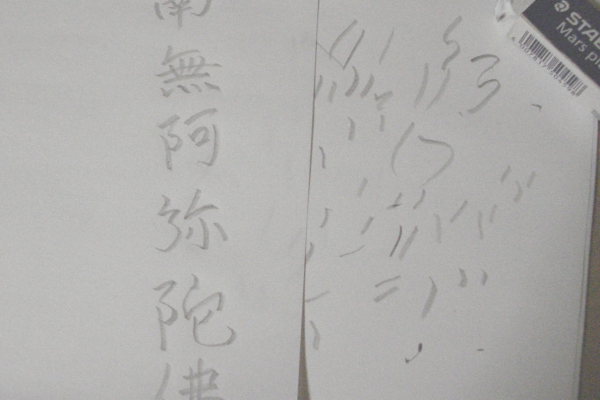 南無阿弥陀佛
STAE
Mars pl